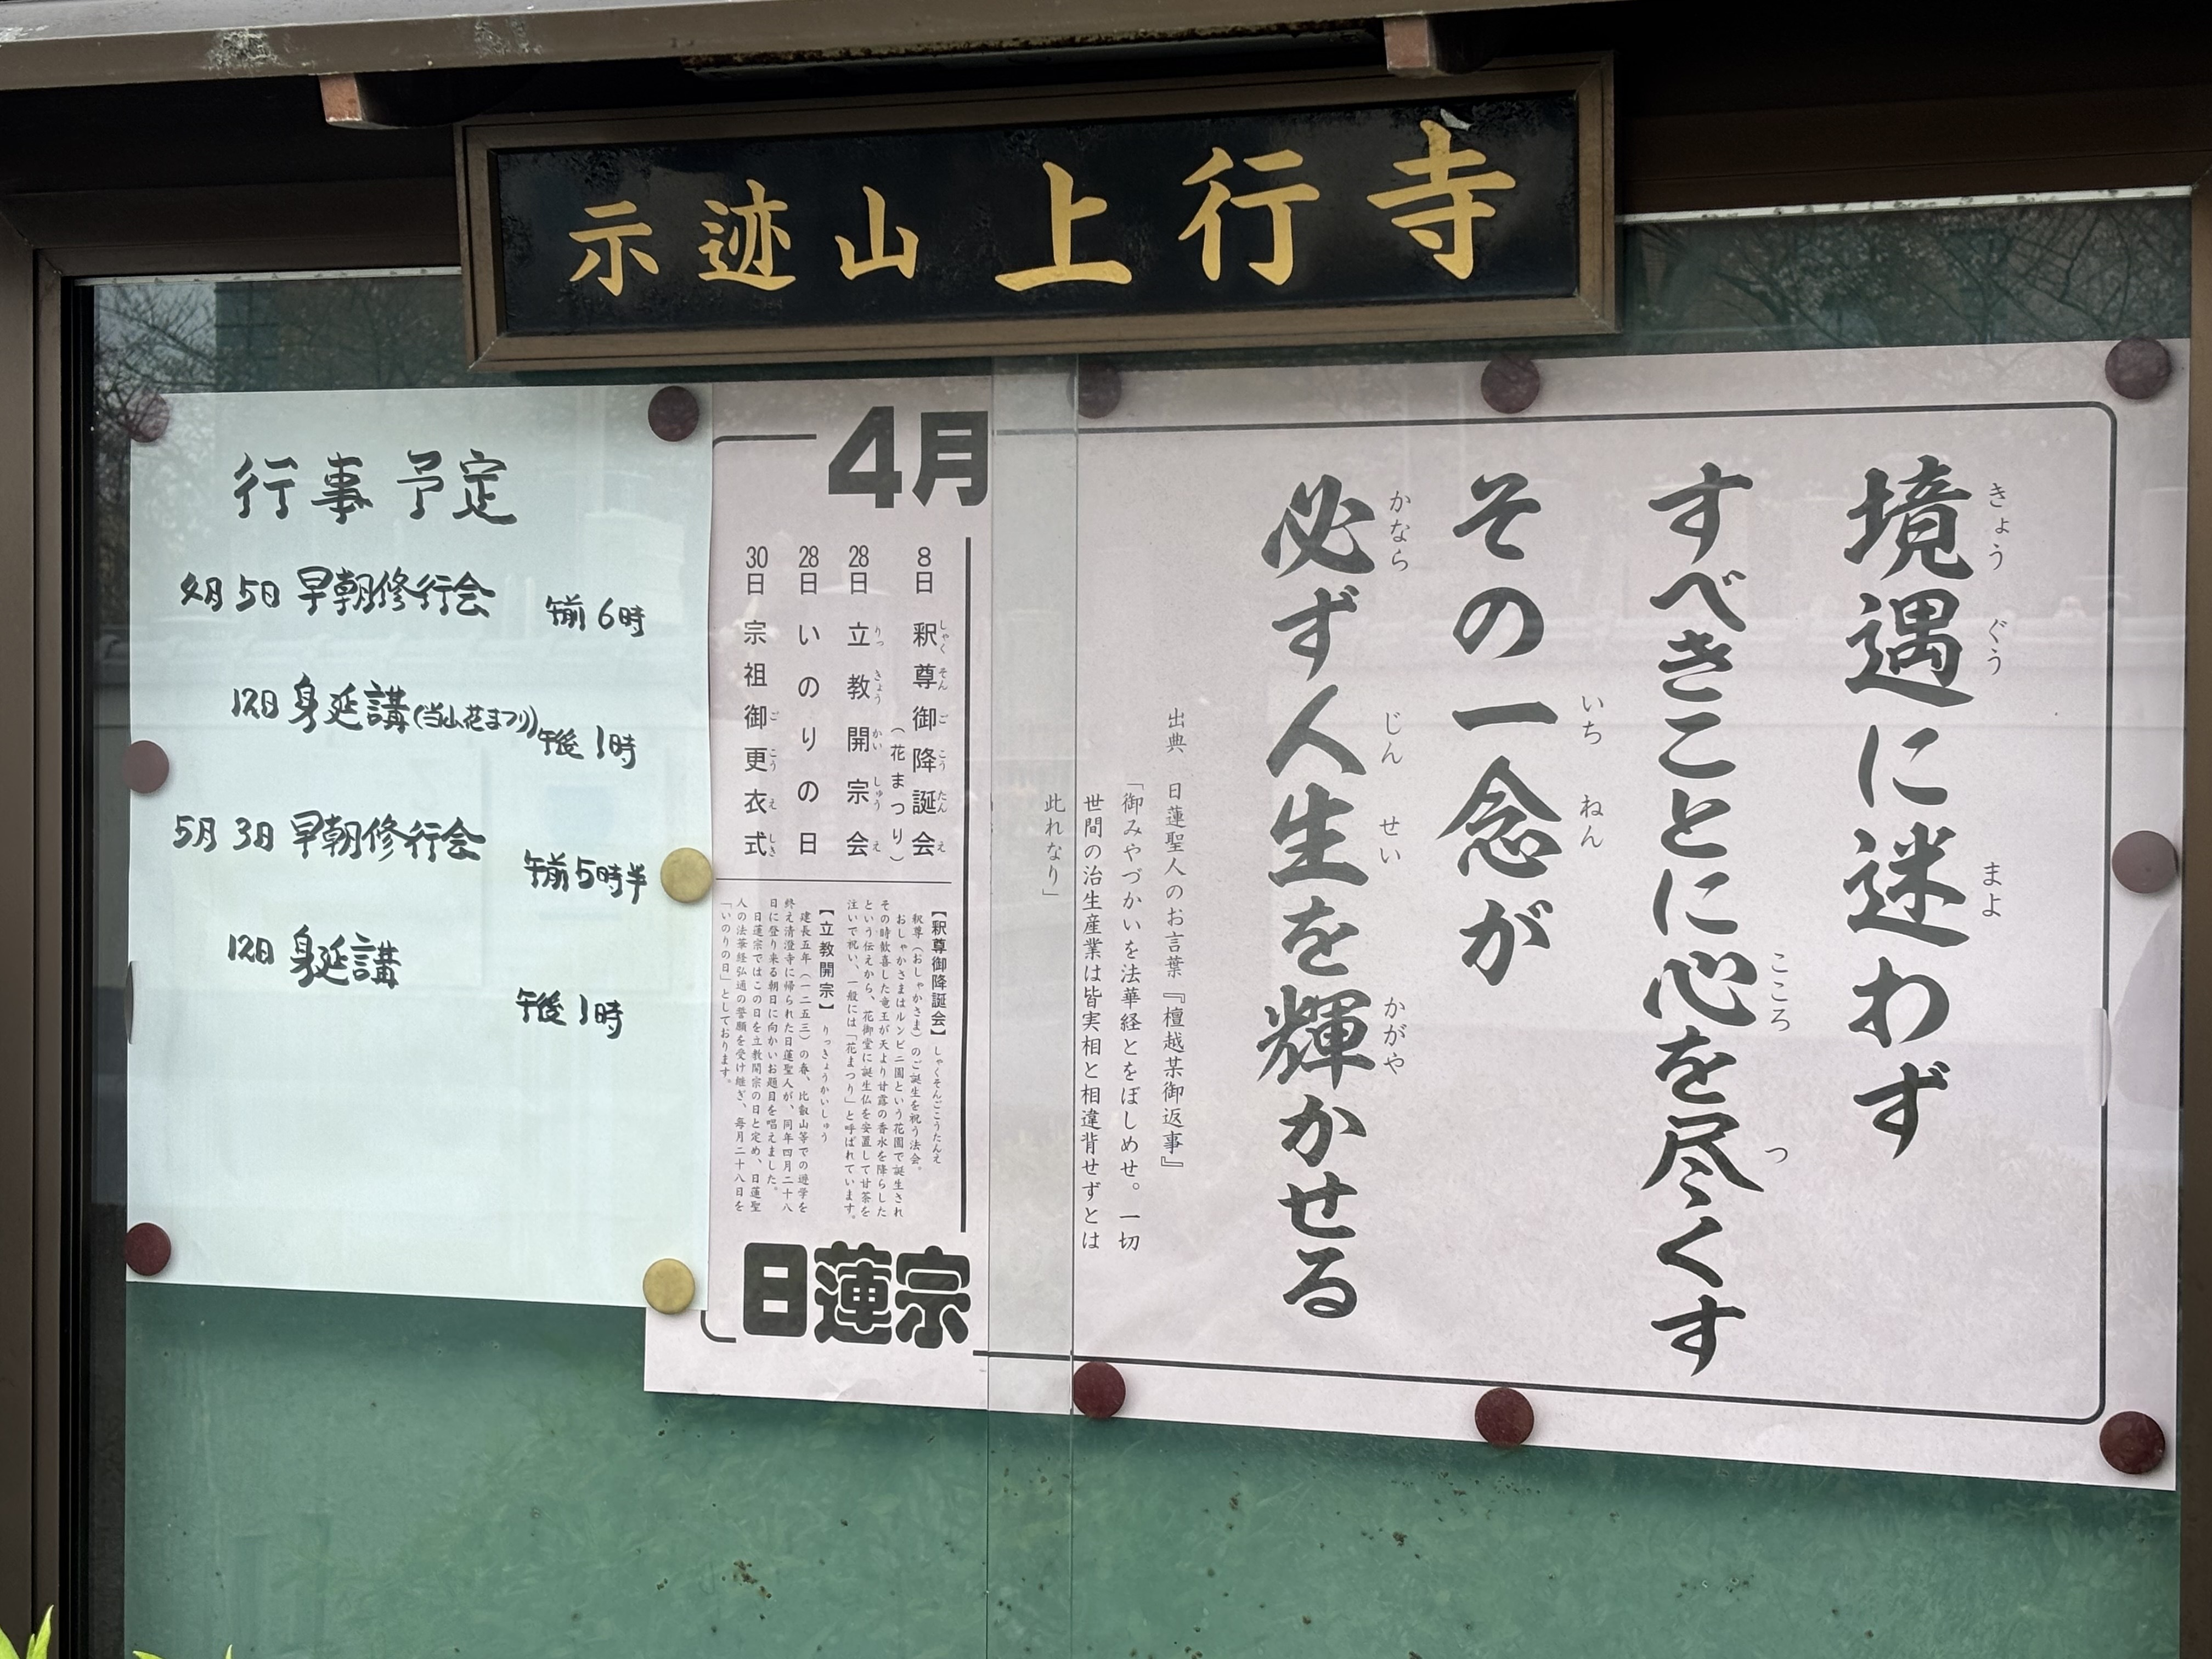 示迹山上行寺
境遇に迷わず
きょうぐう まよ
すべきことに心を尽くす
こころ つ
その一念が
いちねん
必ず人生を輝かせる
かなら じんせい かがや
出典 日蓮聖人のお言葉『檀越某御返事』
「御みやづかいを法華経とをぼしめせ。一切
世間の治生産業は皆実相と相違背せずとは
此れなり」
4月
8日 釈尊御降誕会
しゃくそんごこうたんえ
(花まつり)
28日 立教開宗会
りっきょうかいしゅうえ
28日 いのりの日
30日 宗祖御更衣式
ごこうえしき
【釈尊御降誕会】 しゃくそんごこうたんえ
釈尊(おしゃかさま)のご誕生を祝う法会。
おしゃかさまはルンビニ園という花園で誕生され
その時歓喜した竜王が天より甘露の香水を降らした
という伝えから、花御堂に誕生仏を安置して甘茶を
注いで祝い、一般には「花まつり」と呼ばれています。
【立教開宗】 りっきょうかいしゅう
建長五年(一二五三)の春、比叡山等での遊学を
終え清澄寺に帰られた日蓮聖人が、同年四月二十八
日に登り来る朝日に向かいお題目を唱えました。
日蓮宗ではこの日を立教開宗の日と定め、日蓮聖
人の法華経弘通の誓願を受け継ぎ、毎月二十八日を
「いのりの日」としております。
日蓮宗
行事予定
4月5日 早朝修行会 午前6時
12日 身延講(当山花まつり) 午後1時
5月3日 早朝修行会 午前5時半
12日 身延講 午後1時